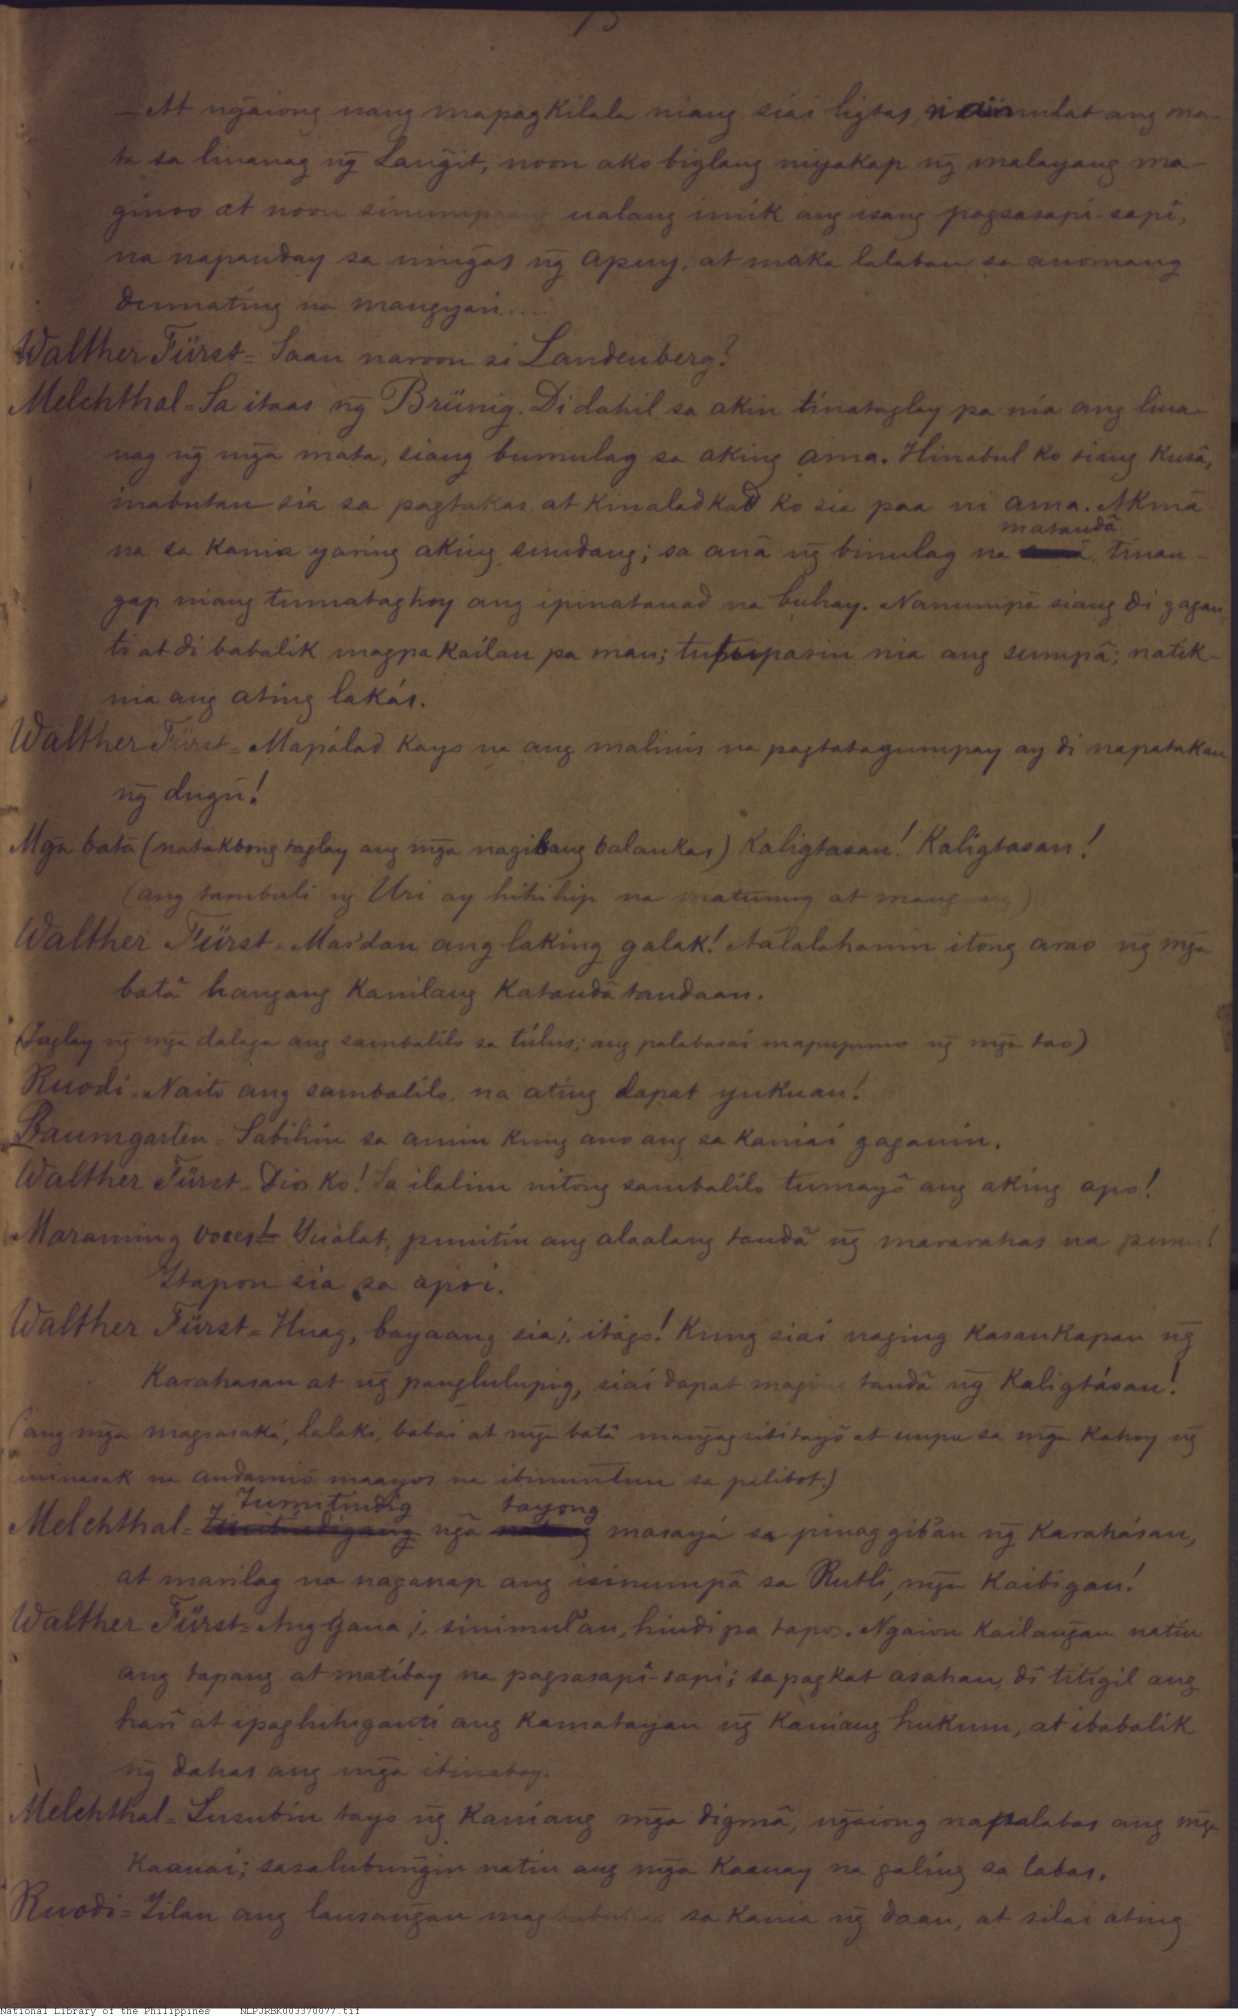 — At ng̃aiong nang mapagkilala niang siai ligtas, imulat ang ma-
ta sa linanag ng̃ Lang̃it, noon ako biglang niyakap ng̃ malayang ma-
ginoo at noon ualang imik ang isang pagsasapi-sapi,
na napanday sa ning̃as ng̃ apuy, at maka lalaban sa anomang
dumating na mangyari.....
Walther Fürst = Saan naroon si Landenberg?
Melchthal = Sa itaas ng̃ Brünig. Di dahil sa akin tinataglay pa nia ang lina-
nag ng̃ mg̃a mata, siang bumulag sa aking ama. Hinabul ko siang kusâ,
inabutan sia sa pagtakas at kinaladkad ko sia paa ni ama. Akmâ
na sa kania yaring aking sundang; sa auâ ng̃ binulag na matandâ tinan-
gap niang tumataghoy ang ipinatauad na buhay. Nanumpâ siang di gagan
ti at di babalik magpakailan pa man; tutuparin nia ang sumpâ; natik-
nia ang ating lakás.
Walther Fürst = Mapálad kayo na ang malinis na pagtatagumpay ay di napatakan
ng̃ dugû!
Mg̃a batà (natakbong taglay ang mg̃a nagibang balankas) Kaligtasan! Kaligtasan!
(ang tambuli ng̃ Uri ay hihihip na matunug at
Walther Fürst = Mas'dan ang laking galak! Aalalahanin itong arao ng̃ mg̃a
batâ hangang kanilang katandâ tandaan.
(Taglay ng̃ mg̃a dalaga ang sambalilo sa túlus; ang palabasai mapupuno ng̃ mg̃a tao)
Ruodi = Naito ang sambalilo, na ating dapat yukuan!
Baumgarten = Sabihin sa amin kung ano ang sa kaniai gagauin.
Walther Fürst = Dios ko! Sa ilalim nitong sambalilo tumayô ang aking apo!
Maraming voces! = Iuálat, punitin ang alaalang tandâ ng̃ mararahas na
Itapon sia sa apoi.
Walther Fürst = Huag, bayaang siai, itágo! Kung siai naging kasankapan ng̃
karahasan at ng̃ panglulupig, siai dapat maging tandâ ng̃ kaligtásan!
(ang mg̃a magsasaká, lalaki, babai at mg̃a batâ mang̃agsisitayô at uupu sa mg̃a kahoy ng̃
uinasak na andamio maayos na ibinuntun sa palibot.)
Melchthal = Tumitindig ng̃â tayong masayá sa pinaggibáan ng̃ karahásan,
at marilag na naganap ang isinumpâ sa Rutli, mg̃a kaibigan!
Walther Fürst = Ang gaua i, sinimulan, hindi pa tapos. Ng̃aion kailang̃an natin
ang tapang at matibay na pagsasapi-sapi; sapagkat asahan, di titigil ang
harî at ipaghihiganti ang kamatayan ng̃ kaniang hukum, at ibabalik
ng̃ dahas ang mg̃a itinaboy.
Melchthal = Lusubin tayo ng̃ kaniang mg̃a digmâ, ng̃aiong napalabas ang mg̃a
kaauai; sasalubung̃in natin ang mg̃a kaauay na galing sa labas.
Ruodi = Ilan ang lansang̃an sa kania ng̃ daan, at silai ating
National Library of the Philippines NLPJRBK003370077.tif